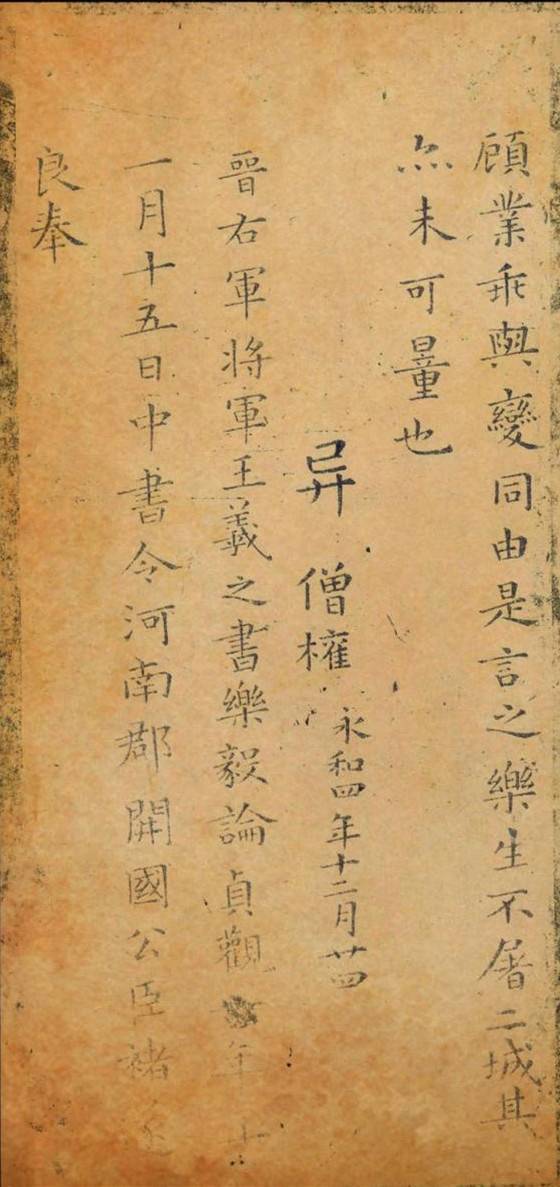 顧業乖與變同由是言之樂生不屠二城其
亦未可量也
异 僧權
永和四年十二月廿四
晉右軍將軍王羲之書樂毅論貞觀年十
一月十五日中書令河南郡開國公臣褚遂
良奉